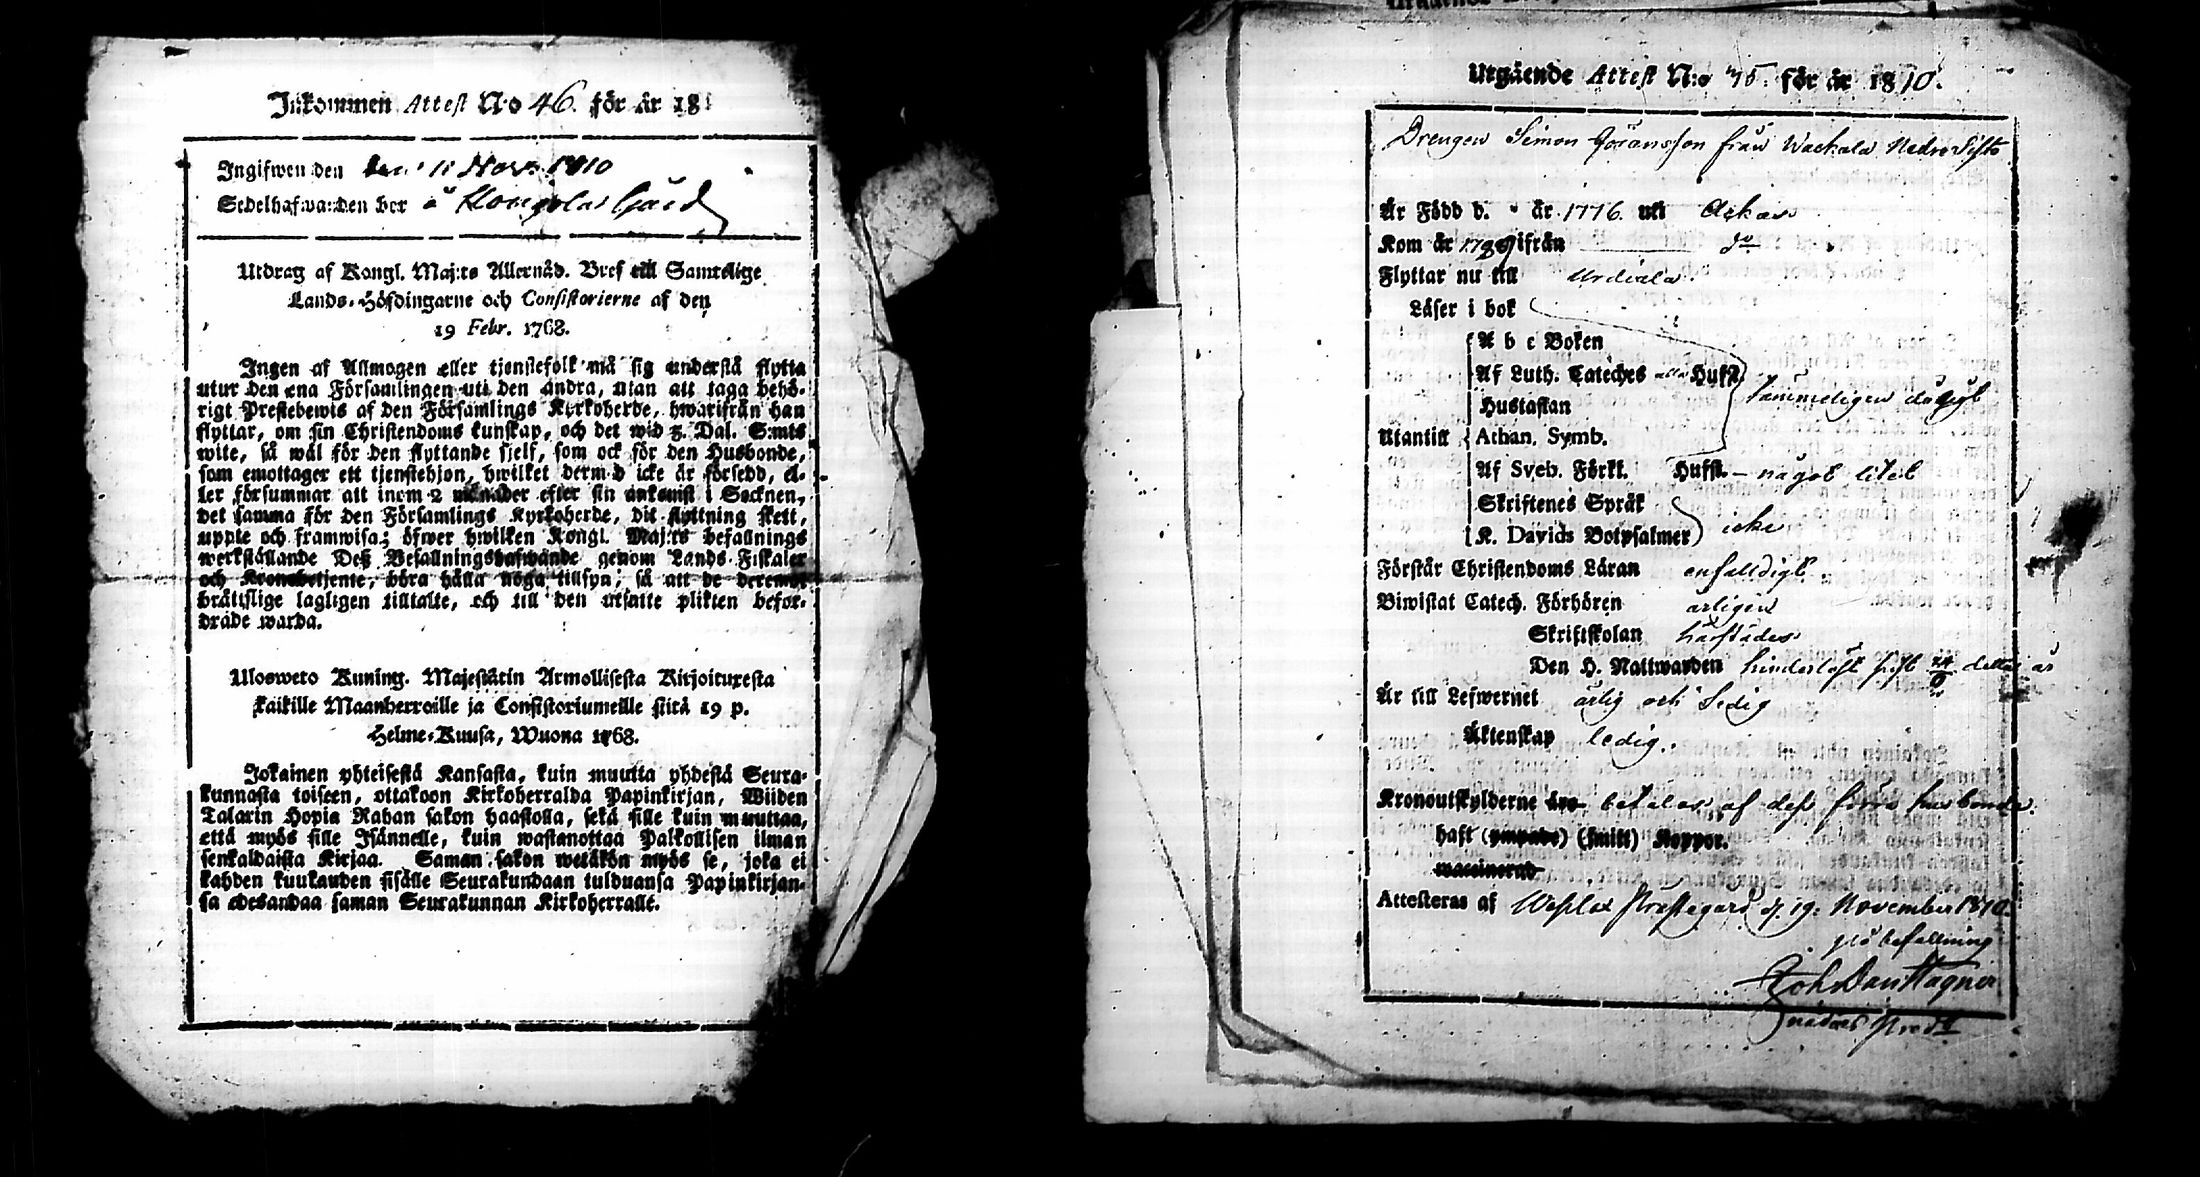 Inkommen Attest No 46. för år 18
Ingifwen den den 11 Nov. 1810
Sedelhafwanden bor å
Utdrag af Kongl. Maj:ts Allernåd. Bref till Samtelige
Lands-Höfdingarne och Consistorierne af den
19 Febr. 1768.
Ingen af Allmogen eller tjenstefolk må sig understå flytta
utur den ena Församlingen uti den andra, utan att taga behö-
rigt Prestebewis af den Församlings Kyrkoherde, hwarifrån han
flyttar, om sin Christendoms kunskap, och det wid 5. Dal. S:mts
wite, så wäl för den flyttande sjelf, som ock för den Husbonde,
som emottager ett tjenstehjon, hwilket dermed icke är försedd, el-
ler försummar att inom 2 månader efter sin ankomst i Socknen,
det samma för den Församlings Kyrkoherde, dit flyttning skett,
uppte och framwisa; öfwer hwilken Kongl. Maj:ts befallnings
werkställande Deß Befallningshafwande genom Lands-Fiskaler
och Kronobetjente, böra hålla noga tillsyn, så att de deremot
bråttslige lagligen tilltalte, och till den utsatte plikten befor-
drade warda.
Ulosweto Kuning. Majestätin Armollisesta Kirjoituxesta
kaikille Maanherroille ja Consistoriumeille siitä 19 p.
Helme-Kuusa, Wuona 1768.
Jokainen yhteisestä Kansasta, kuin muutta yhdestä Seura-
kunnasta toiseen, ottakoon Kirkoherralda Papinkirjan, Wiiden
Talarin Hopia Rahan sakon haastolla, sekä sille kuin muuttaa,
että myös sille Isännelle, kuin wastanottaa Palkollisen ilman
senkaldaista Kirjaa. Saman sakon wetäkön myös se, joka ei
kahden kuukauden sisälle Seurakundaan tulduansa Papinkirjan-
sa edesandaa saman Seurakunnan Kirkoherralle.
Utgående Attest N:o 75. för år 1810.
Drengen Simon Göransson från Wackala Nedre Sifto
Är Född d. år 1776. uti Ackas
Kom år ifrån do
Flyttar nu till Urdiala.
Läser i bok
A b c Boken
Af Luth. Cateches alla Hufst.
Hustaflan
tämmeligen dugligt
Utantill Athan. Symb.
Af Sveb. Förkl. Hufst. – något litet
Skriftenes Språk
K. Davids Botpsalmer icke
Förstår Christendoms Läran enfalldigt.
Biwistat Catech. Förhören årligen
Skriftskolan härstädes
Den H. Nattwarden hinderlöst sist 24/6 detta år
Är till Lefwernet ärlig och Sedig
Äktenskap ledig.
Kronoutskylderne äro betalas af deß förra husbonde.
haft (ympade) (smitt) Koppor.
waccinerad
Attesteras af Wesilax Prestegård d. 19. November 1810.
på befallning
Joh Dan Hagner